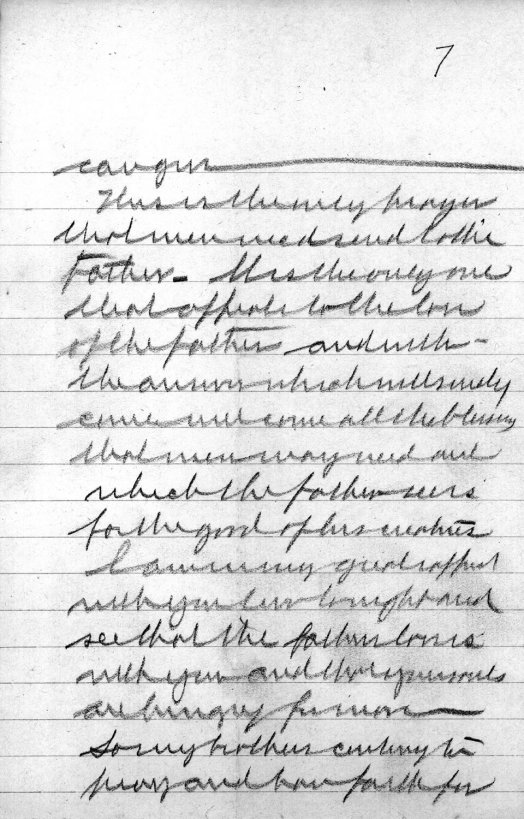 7
can give
This is the only prayer
that men need send to the
Father - It is the only one
that appeals to the love
of the father and with -
the answer which will surely
come will come all the blessings
that men may need and
which the father sees is
for the good of his creatures
I am in very great rapport
with you two tonight and
see that the father's love is
with you and that your souls
are hungry for more
So my brothers continue to
pray and have faith for